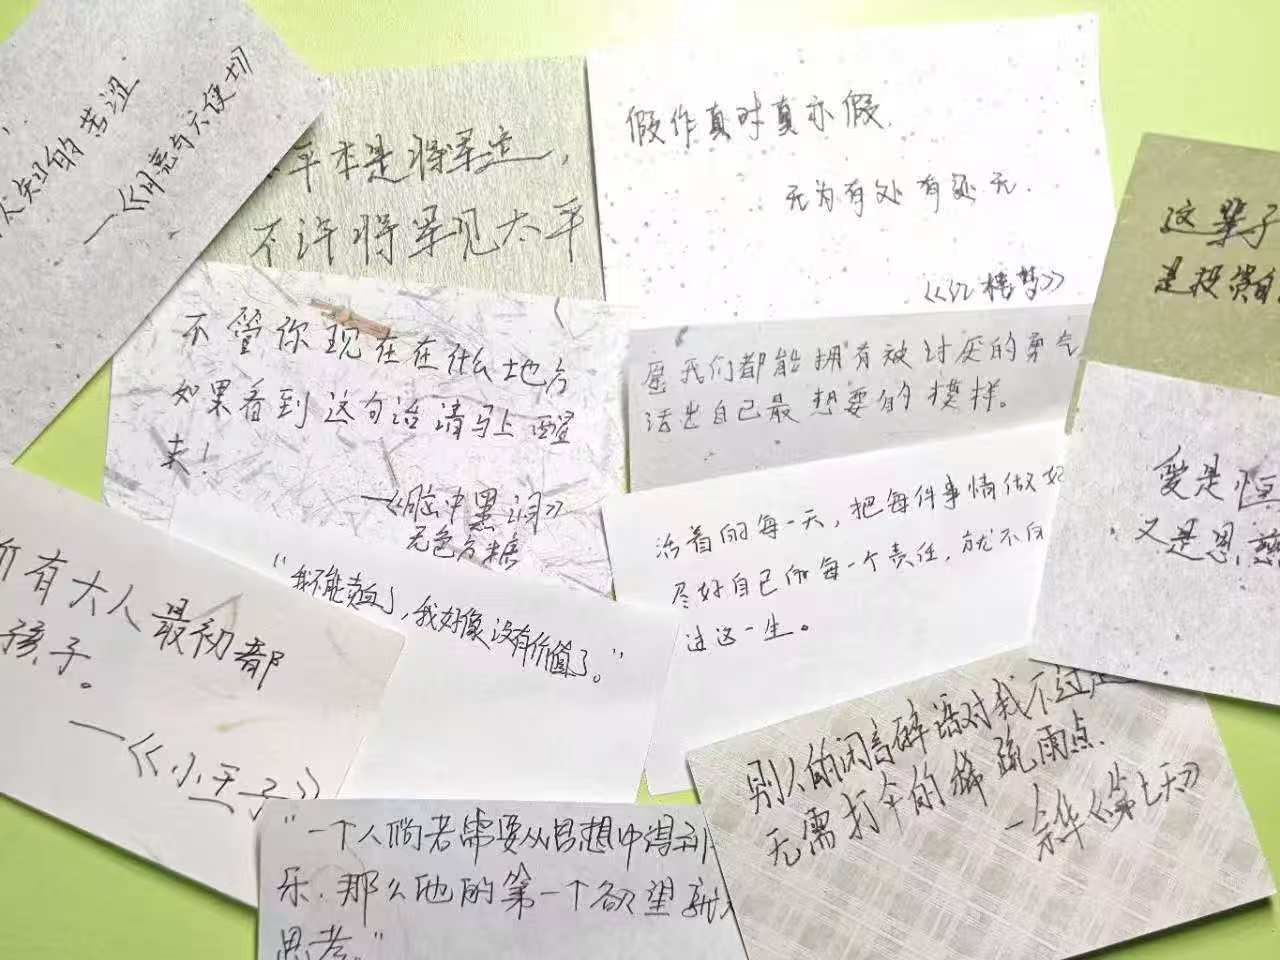 人知的苦涩
——《月亮与六便士》
平本是将军定,
不许将军见太平
假作真时真亦假.
无为有处有还无.
《红楼梦》
这辈子
是投资自
不管你现在在什么地方
如果看到这句话请马上醒
来！
——《脑中黑洞》
无色方糖
愿我们都能拥有被讨厌的勇气
活出自己最想要的模样。
爱是恒
又是恩慈
活着的每一天，把每件事情做好
尽好自己的每一个责任，就不
过这一生。
"我不能卖血了，我好像没有价值了。"
所有大人最初都
孩子。
——《小王子》
别人的闲言碎语对我不过是
无需打伞的稀疏雨点.
——余华《第七天》
"一个人倘若需要从思想中得到
乐，那么他的第一个欲望就
思考。"